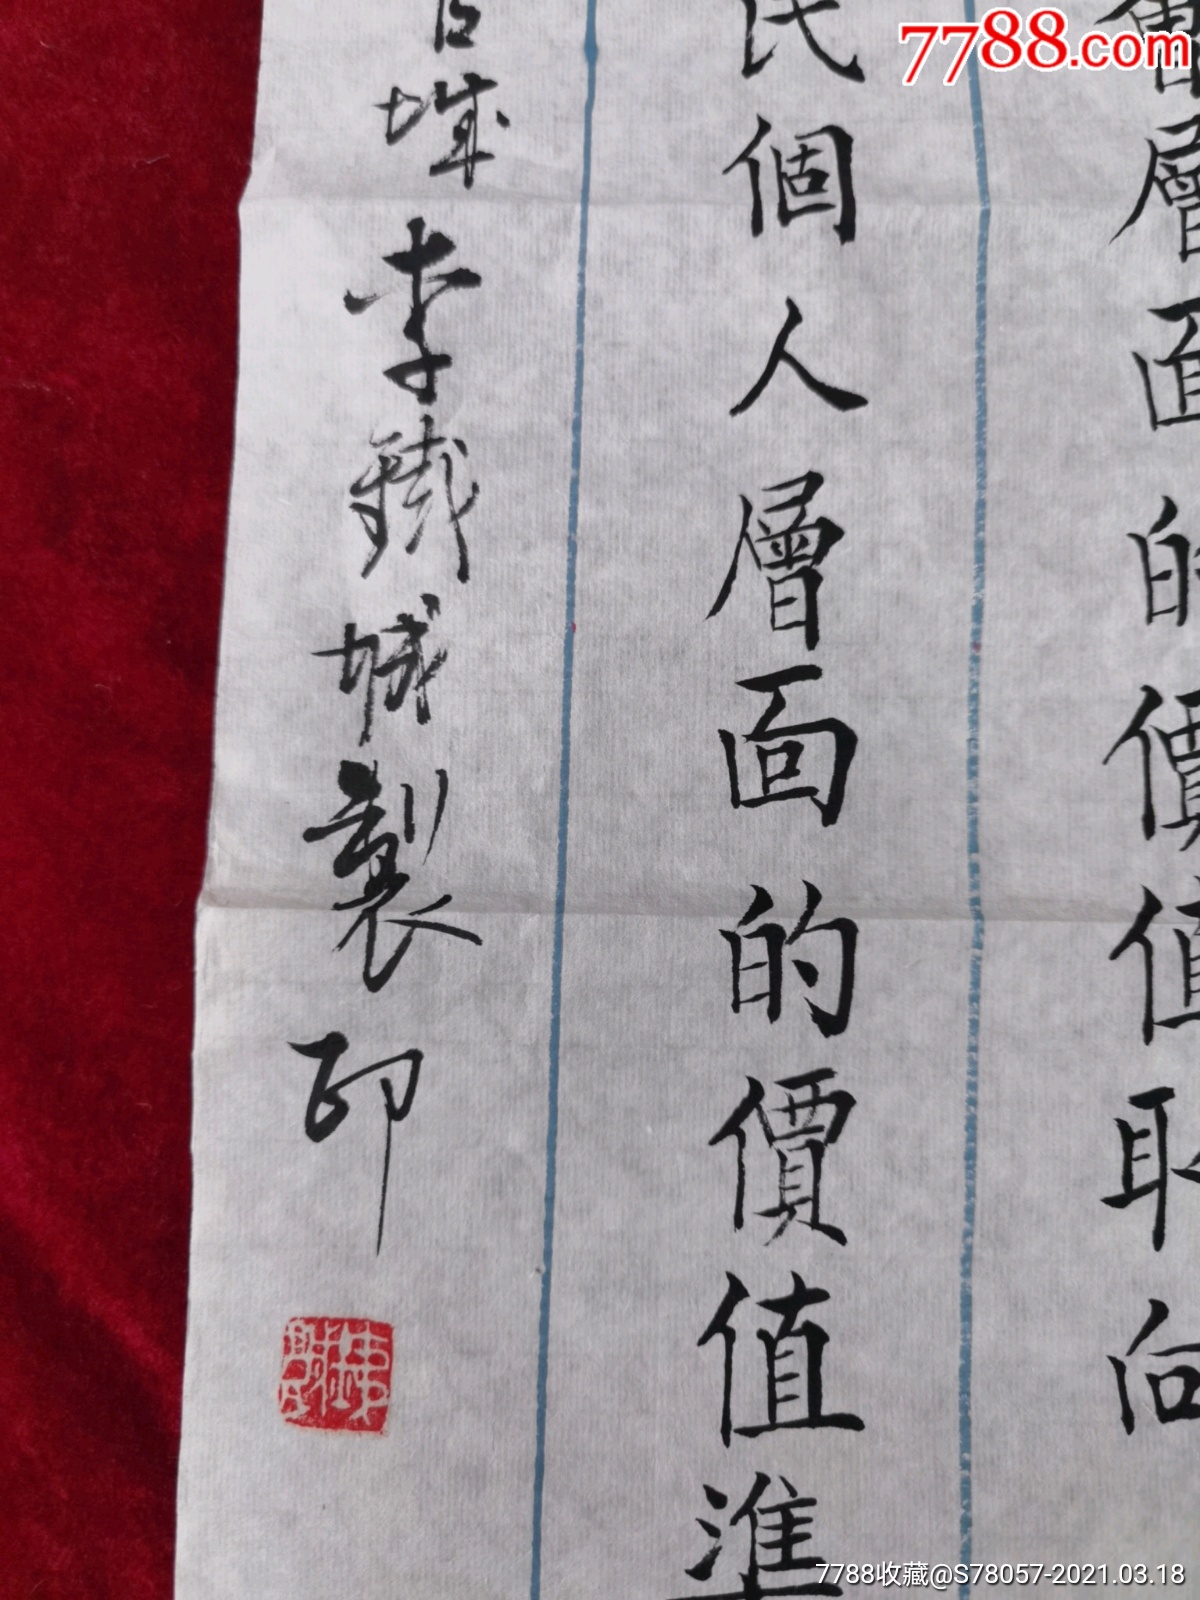 7788.com
層面的價值取向
民個人層面的價值準
李鐵城製印
7788收藏@S78057-2021.03.18